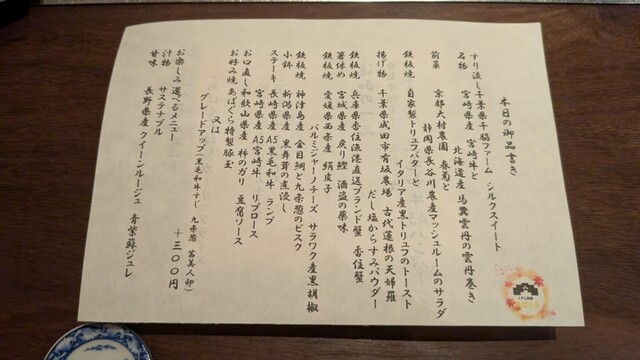 本日の御品書き
すり流し 千葉県千脇ファーム シルクスイート
名物 宮崎県産 宮崎牛と
北海道産 馬糞雲丹の雲丹巻き
前菜 京都大村農園 春菊と
静岡県長谷川農産マッシュルームのサラダ
鉄板焼 自家製トリュフバターと
イタリア産黒トリュフのトースト
揚げ物 千葉県成田市有坂農場 古代蓮根の天婦羅
だし塩からすみパウダー
鉄板焼 兵庫県香住漁港直送ブランド蟹 香住蟹
箸休め 宮城県産 戻り鰹 酒盗の薬味
鉄板焼 愛媛県西条産 絹皮子
パルミジャーノチーズ サラワク産黒胡椒
鉄板焼 神津島産 金目鯛と九条葱のビスク
小鉢 新潟県産 黒舞茸の煮浸し
ステーキ 長崎県産A5黒毛和牛 ランプ
宮崎県産A5宮崎牛 リブロース
お口直し 和歌山県産 柿のガリ 豆腐ソース
お好み焼 あばくら特製豚玉
又は
グレードアップ(黒毛和牛すじ 九条葱 蒿美人卵)
+三〇〇円
お楽しみ 選べるメニュー
汁物 サステナブル
甘味 長野県産 クイーンルージュ 青紫蘇ジュレ